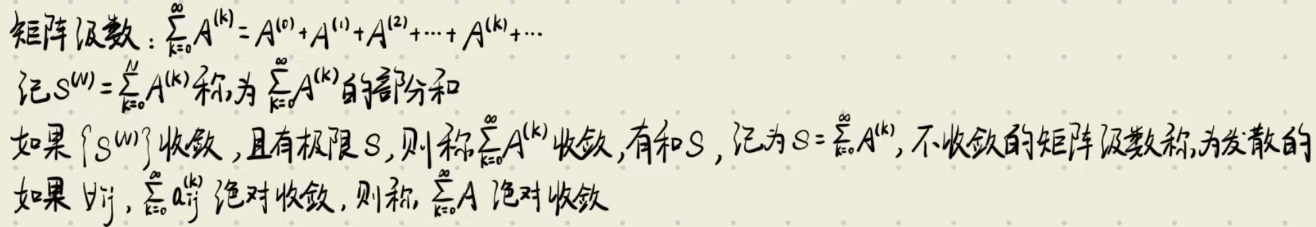 矩阵级数：$\sum_{k=0}^{\infty} A^{(k)} = A^{(0)} + A^{(1)} + A^{(2)} + \cdots + A^{(k)} + \cdots$
记 $S^{(N)} = \sum_{k=0}^{N} A^{(k)}$ 称为 $\sum_{k=0}^{\infty} A^{(k)}$ 的部分和
如果 $\{S^{(N)}\}$ 收敛，且有极限 S，则称 $\sum_{k=0}^{\infty} A^{(k)}$ 收敛，有和 S，记为 $S = \sum_{k=0}^{\infty} A^{(k)}$，不收敛的矩阵级数称为发散的
如果 $\forall ij$，$\sum_{k=0}^{\infty} a_{ij}^{(k)}$ 绝对收敛，则称，$\sum_{k=0}^{\infty} A$ 绝对收敛